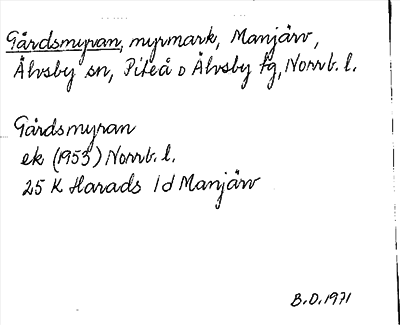 Gårdsmyran, myrmark, Manjärv,
Älvsby sn, Piteå o Älvsby tg, Norrb. l.
Gårdsmyran
ek (1953) Norrb. l.
25 K Harads 1d Manjärv
B.D. 1971